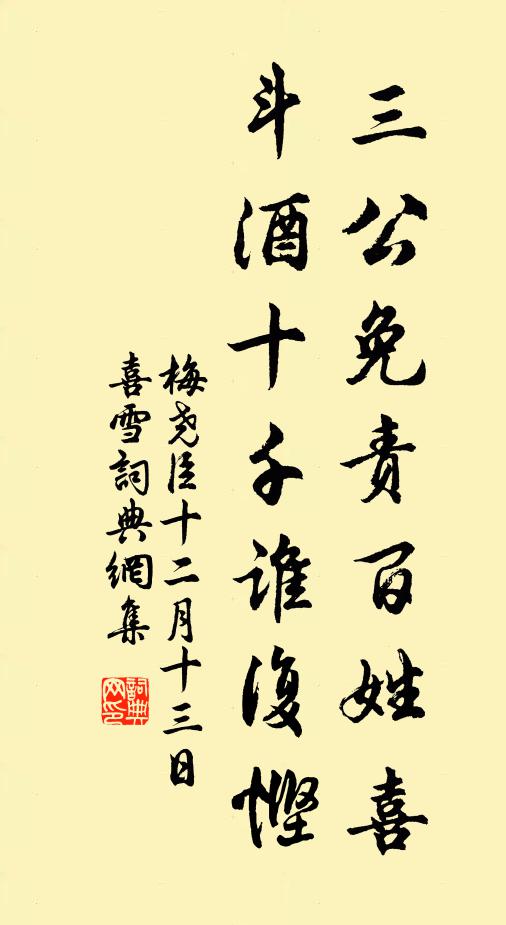 三公免责百姓喜
斗酒十千谁復悭
梅尧臣十二月十三日
喜雪詞典網集
詞典
网印